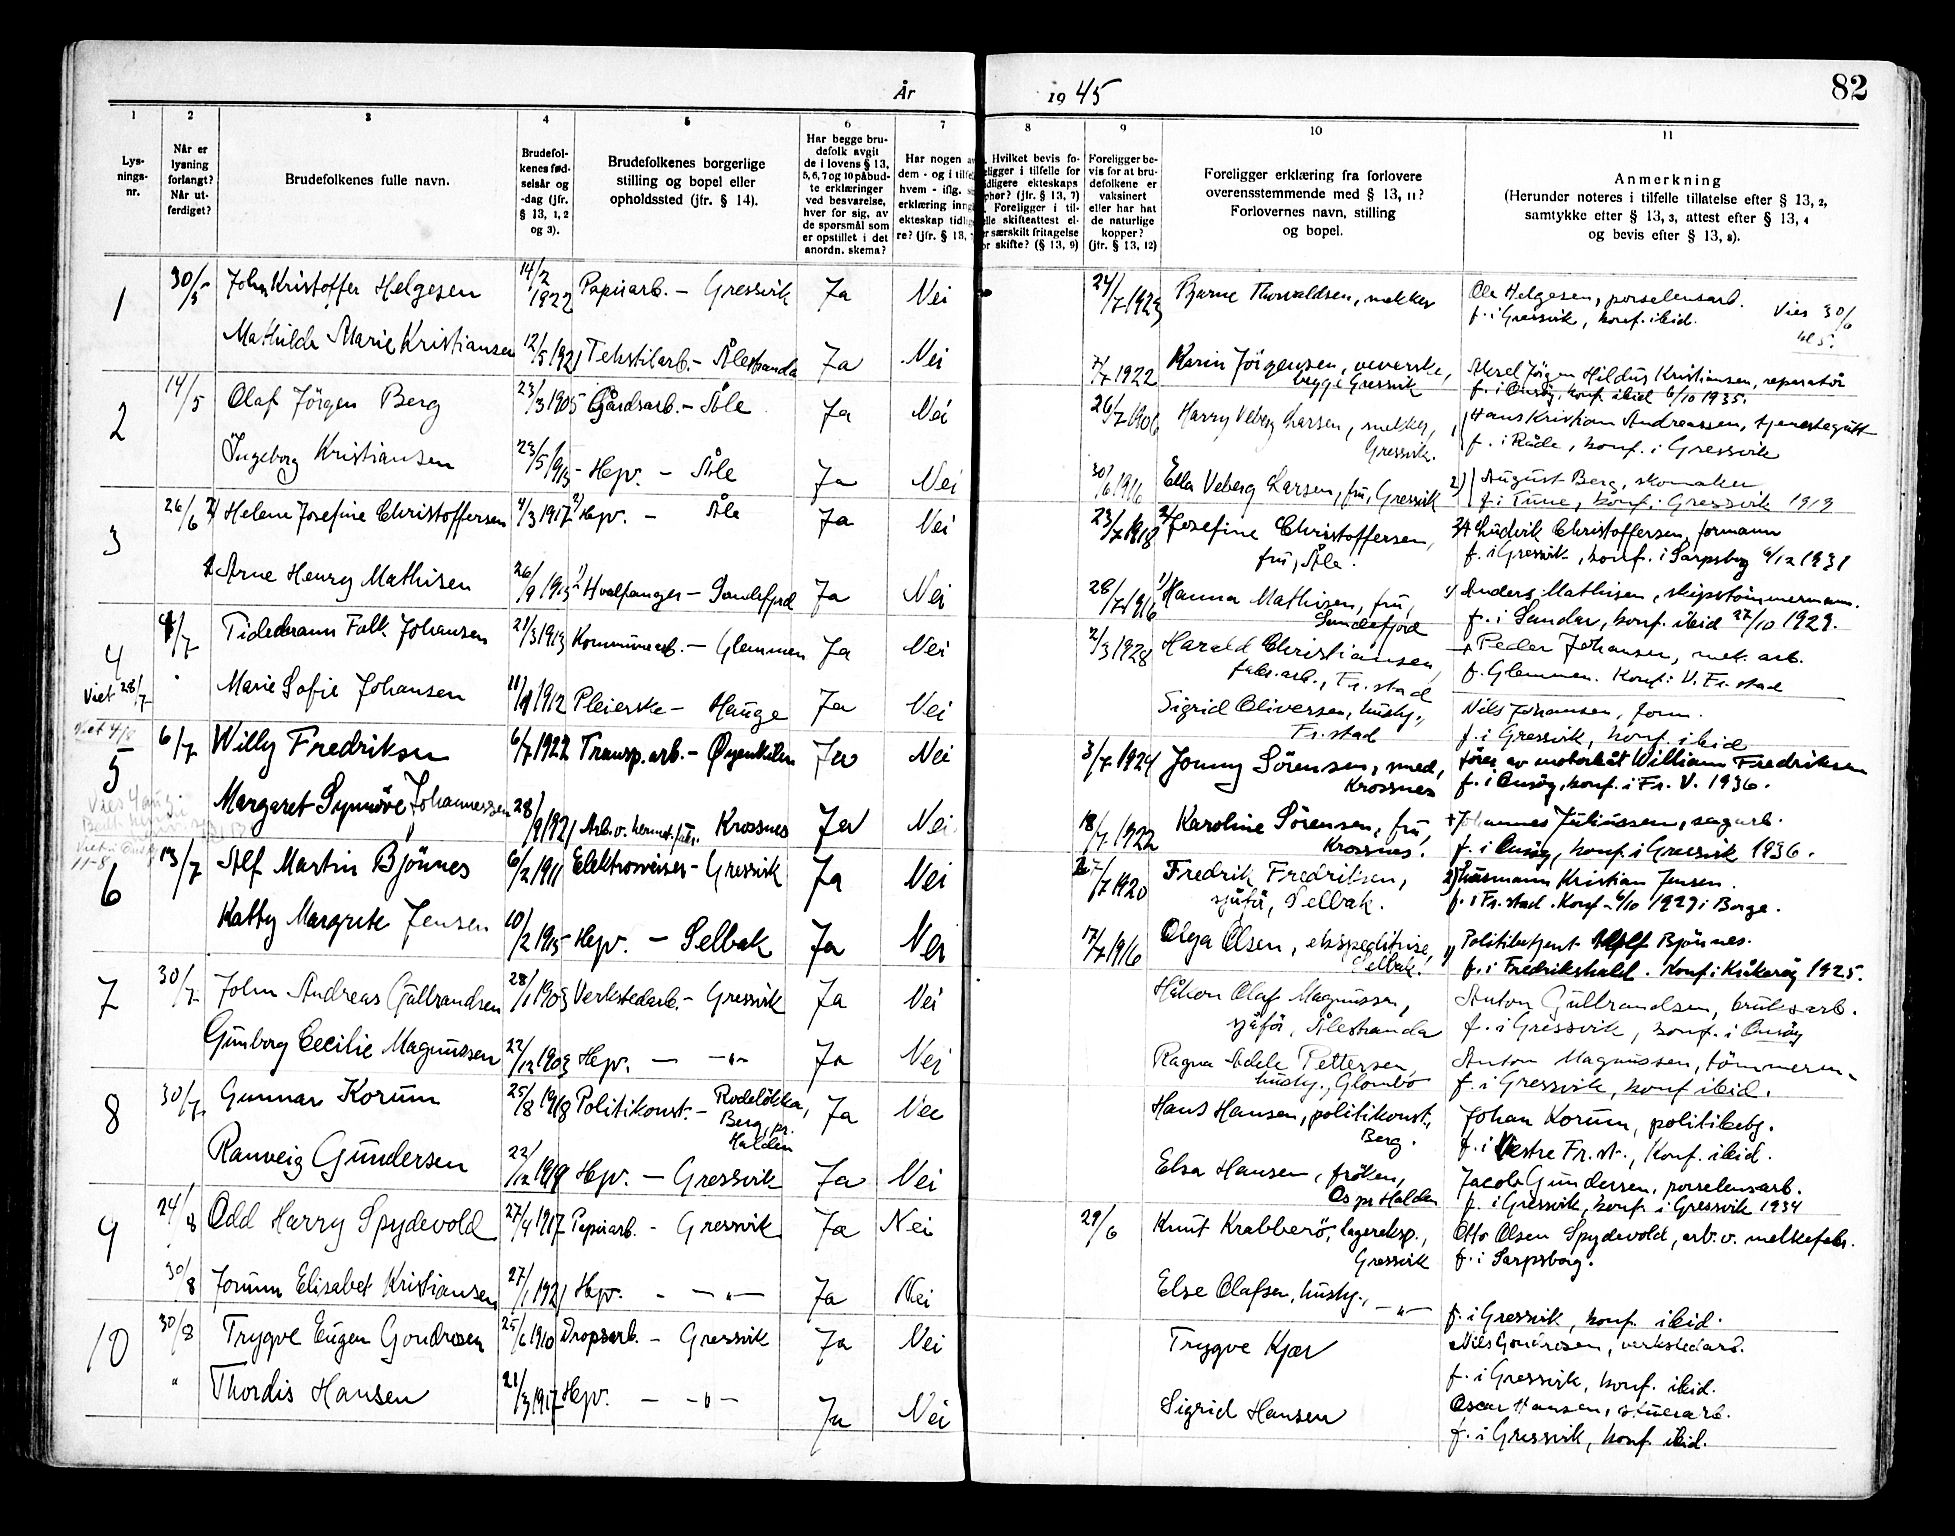 År 1945
82
1
2
3
4
5
6
7
8
9
10
11
Lys-
nings-
nr.
Når er
lysning
forlangt?
Når ut-
ferdiget?
Brudefolkenes fulle navn.
Brudefol-
kenes fød-
selsår og
-dag (jfr.
§ 13, 1, 2
og 3).
Brudefolkenes borgerlige
stilling og bopel eller
opholdssted (jfr. § 14).
Har begge bru-
defolk avgit
de i lovens § 13,
5, 6, 7 og 10 påbud-
te erklæringer
ved besvarelse,
hver for sig, av
de spørsmål som
er opstillet i det
anordn. skema?
Har nogen av
dem - og i tilfe
hvem - iflg. s
erklæring inng
ekteskap tidlig
re? (jfr. § 13,
Hvilket bevis fo-
eligger i tilfelle for
idligere ekteskaps
phør? (jfr. § 13, 7)
Foreligger i til-
elle skifteattest el-
r særskilt fritagelse
or skifte? (§ 13, 9)
Foreligger be-
vis for at bru-
defolkene er
vaksinert
eller har hat
de naturlige
kopper?
(jfr. § 13, 12)
Foreligger erklæring fra forlovere
overensstemmende med § 13, 11?
Forlovernes navn, stilling
og bopel.
Anmerkning
(Herunder noteres i tilfelle tillatelse efter § 13, 2,
samtykke efter § 13, 3, attest efter § 13, 4
og bevis efter § 13, 8).
1 30/5 John Kristoffer Helgesen 14/2 1922 Papirarb. - Gressvik Ja Nei 24/7 1923 Bjarne Thorvaldsen, mekker Ole Helgesen, porselensarb.
f. i Gressvik, konf. ibid. Vies 30/6
kl 5.
Mathilde Marie Kristiansen 12/5 1921 Tekstilarb. - Ålestranda Ja Nei 7/7 1922 Karin Jörgensen, veverske, Aksel Jörgen Hildus Kristiansen, reparatör
begge Gressvik f. i Onsöy, konf. ibid 6/10 1935.
2 14/5 Olaf Jörgen Berg 23/3 1905 Gårdsarb. - Åle Ja Nei 26/7 1906 Harry Veberg Larsen, mekker, Hans Kristian Andreassen, tjenestegutt
Gressvik. f. i Råde, konf. i Gressvik
Ingeborg Kristiansen 23/5 1913 Hjv. - Åle Ja Nei 30/6 1916 Ella Veberg Larsen, fru, Gressvik 2) August Berg, skomaker
f. i Tune, konf. i Gressvik 1919
3 26/6 2) Helene Josefine Christoffersen 4/3 1917 2) Hjv. - Åle Ja Nei 23/7 1918 2) Josefine Christoffersen, 2) Ludvik Christoffersen, formann
fru, Åle. f. i Gressvik, konf. i Sarpsborg 6/12 1931
1 Arne Henry Mathisen 26/9 1915 1) Hvalfanger - Sandefjord Ja Nei 28/7 1916 1) Hanna Mathisen, fru, 1) Anders Mathisen, skipstömmermann.
Sandefjord f. i Sandar, konf. ibid 27/10 1929.
4 4/7 Tidemann Falk Johansen 21/3 1913 Kommunearb. - Glemmen Ja Nei 2/3 1928 Harald Christiansen, Peder Johansen, mek. arb.
fabr. arb., Fr.stad f. Glemmen. Konf: V. Fr.stad
Viet 28/7
Marie Sofie Johansen 11/11 1912 Pleierske - Hauge Ja Nei Sigrid Oliversen, husby., Nils Johansen, form.
Fr.stad f. i Gressvik, konf. ibid
Viet 4/8
5 6/7 Willy Fredriksen 6/7 1922 Transp. arb. - Øyenkilen Ja Nei 3/7 1924 Jonny Sörensen, med, förer av motorbåt William Fredriksen
Krossnes f. i Onsöy, konf. i Fr. V. 1936.
Margaret Synnöve Johannessen 28/9 1921 Arb. v. hermet.fabr. Krossnes Ja Nei 18/7 1922 Karoline Sörensen, fru, Johannes Juliussen, sagarb.
Krossnes. f. i Onsöy, konf. i Gressvik 1936.
11-8
6 13/7 Alf Martin Bjönnes 6/2 1911 Elektrosveiser - Gressvik Ja Nei 27/7 1920 Fredrik Fredriksen, 2) Husmann Kristian Jensen.
sjåför, Selbak. f. i Fr.stad. Konf - 6/10 1929 i Borge.
Katty Margrete Jensen 10/2 1915 Hjv. - Selbak Ja Nei 17/7 1916 Olga Olsen, ekspeditrise, 1) Politibetjent Adolf Bjönnes.
Selbak. f. i Fredrikshald. Konf. i Kråkeröy 1925.
7 30/7 John Andreas Gulbrandsen 28/1 1903 Verkstedarb. - Gressvik Ja Nei Håkon Olaf Magnussen, Anton Gulbrandsen, bruksarb.
sjåför, Ålestranda f. i Gressvik, konf. i Onsöy
Gunborg Cecilie Magnussen 22/12 1903 Hjv. - -"- Ja Nei Ragna Adele Pettersen, Anton Magnussen, tömmerm.
husby., Glombo f. i Gressvik, konf ibid.
8 30/7 Gunnar Korum 25/8 1918 Politikonst. - Rodelökka, Ja Nei Hans Hansen, politikonst., Johan Korum, politibetj.
Berg, pr. Berg. f. i Vestre Fr.st., Konf. ibid.
Halden
Ranveig Gundersen 22/12 1919 Hjv. - Gressvik Ja Nei Elsa Hansen, fröken, Jacob Gundersen, porselensarb.
Os pr Halden f. i Gressvik, konf. i Gressvik 1934
9 24/8 Odd Harry Spydevold 27/4 1917 Papirarb. - Gressvik Ja Nei 29/6 Knut Krabberö, lagereksp., Otto Olsen Spydevold, arb. v. melkefabr.
Gressvik f. i Sarpsborg.
30/8 Jorunn Elisabet Kristiansen 27/1 1921 Hjv. - -"- Ja Nei Else Olafsen, husby., -"- f. i Gressvik, konf. ibid.
10 30/8 Trygve Eugen Gondrosen 25/6 1910 Dropsarb. - Gressvik Ja Nei Trygve Kjær Nils Gondrosen, verkstedarb.
f. i Gressvik, konf. ibid.
" Thordis Hansen 21/3 1917 Hjv. - -"- Ja Nei Sigrid Hansen Oscar Hansen, stuerarb.
f. i Gressvik, konf. ibid.